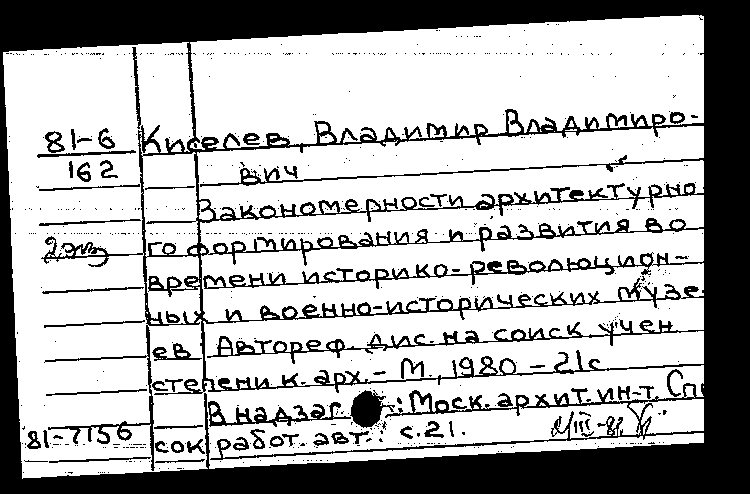 81-6 Киселев, Владимир Владимиро-
162 вич
Закономерности архитектурно
2 экз го формирования и развития во
времени историко-революцион-
ных и военно-исторических музе
ев. Автореф. дис. на соиск. учен
степени к. арх. - М., 1980 - 21с
В надзаг.: Моск. архит. ин-т. Спи
81-7156 сок работ. авт.: с. 21.